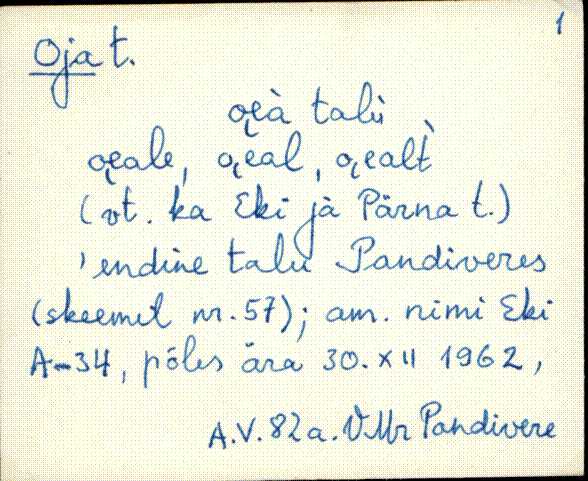 1
Oja t.
o̭eà talù
o̭eale, o̭eal, o̭ealt̀
(vt. ka Eki jà Pärna t.)
'endine talu Pandiveres
(skeemil nr. 57); am. nimi Eki
A-34, põles ära 30. XII 1962,
A.V. 82 a. VMr Pandivere